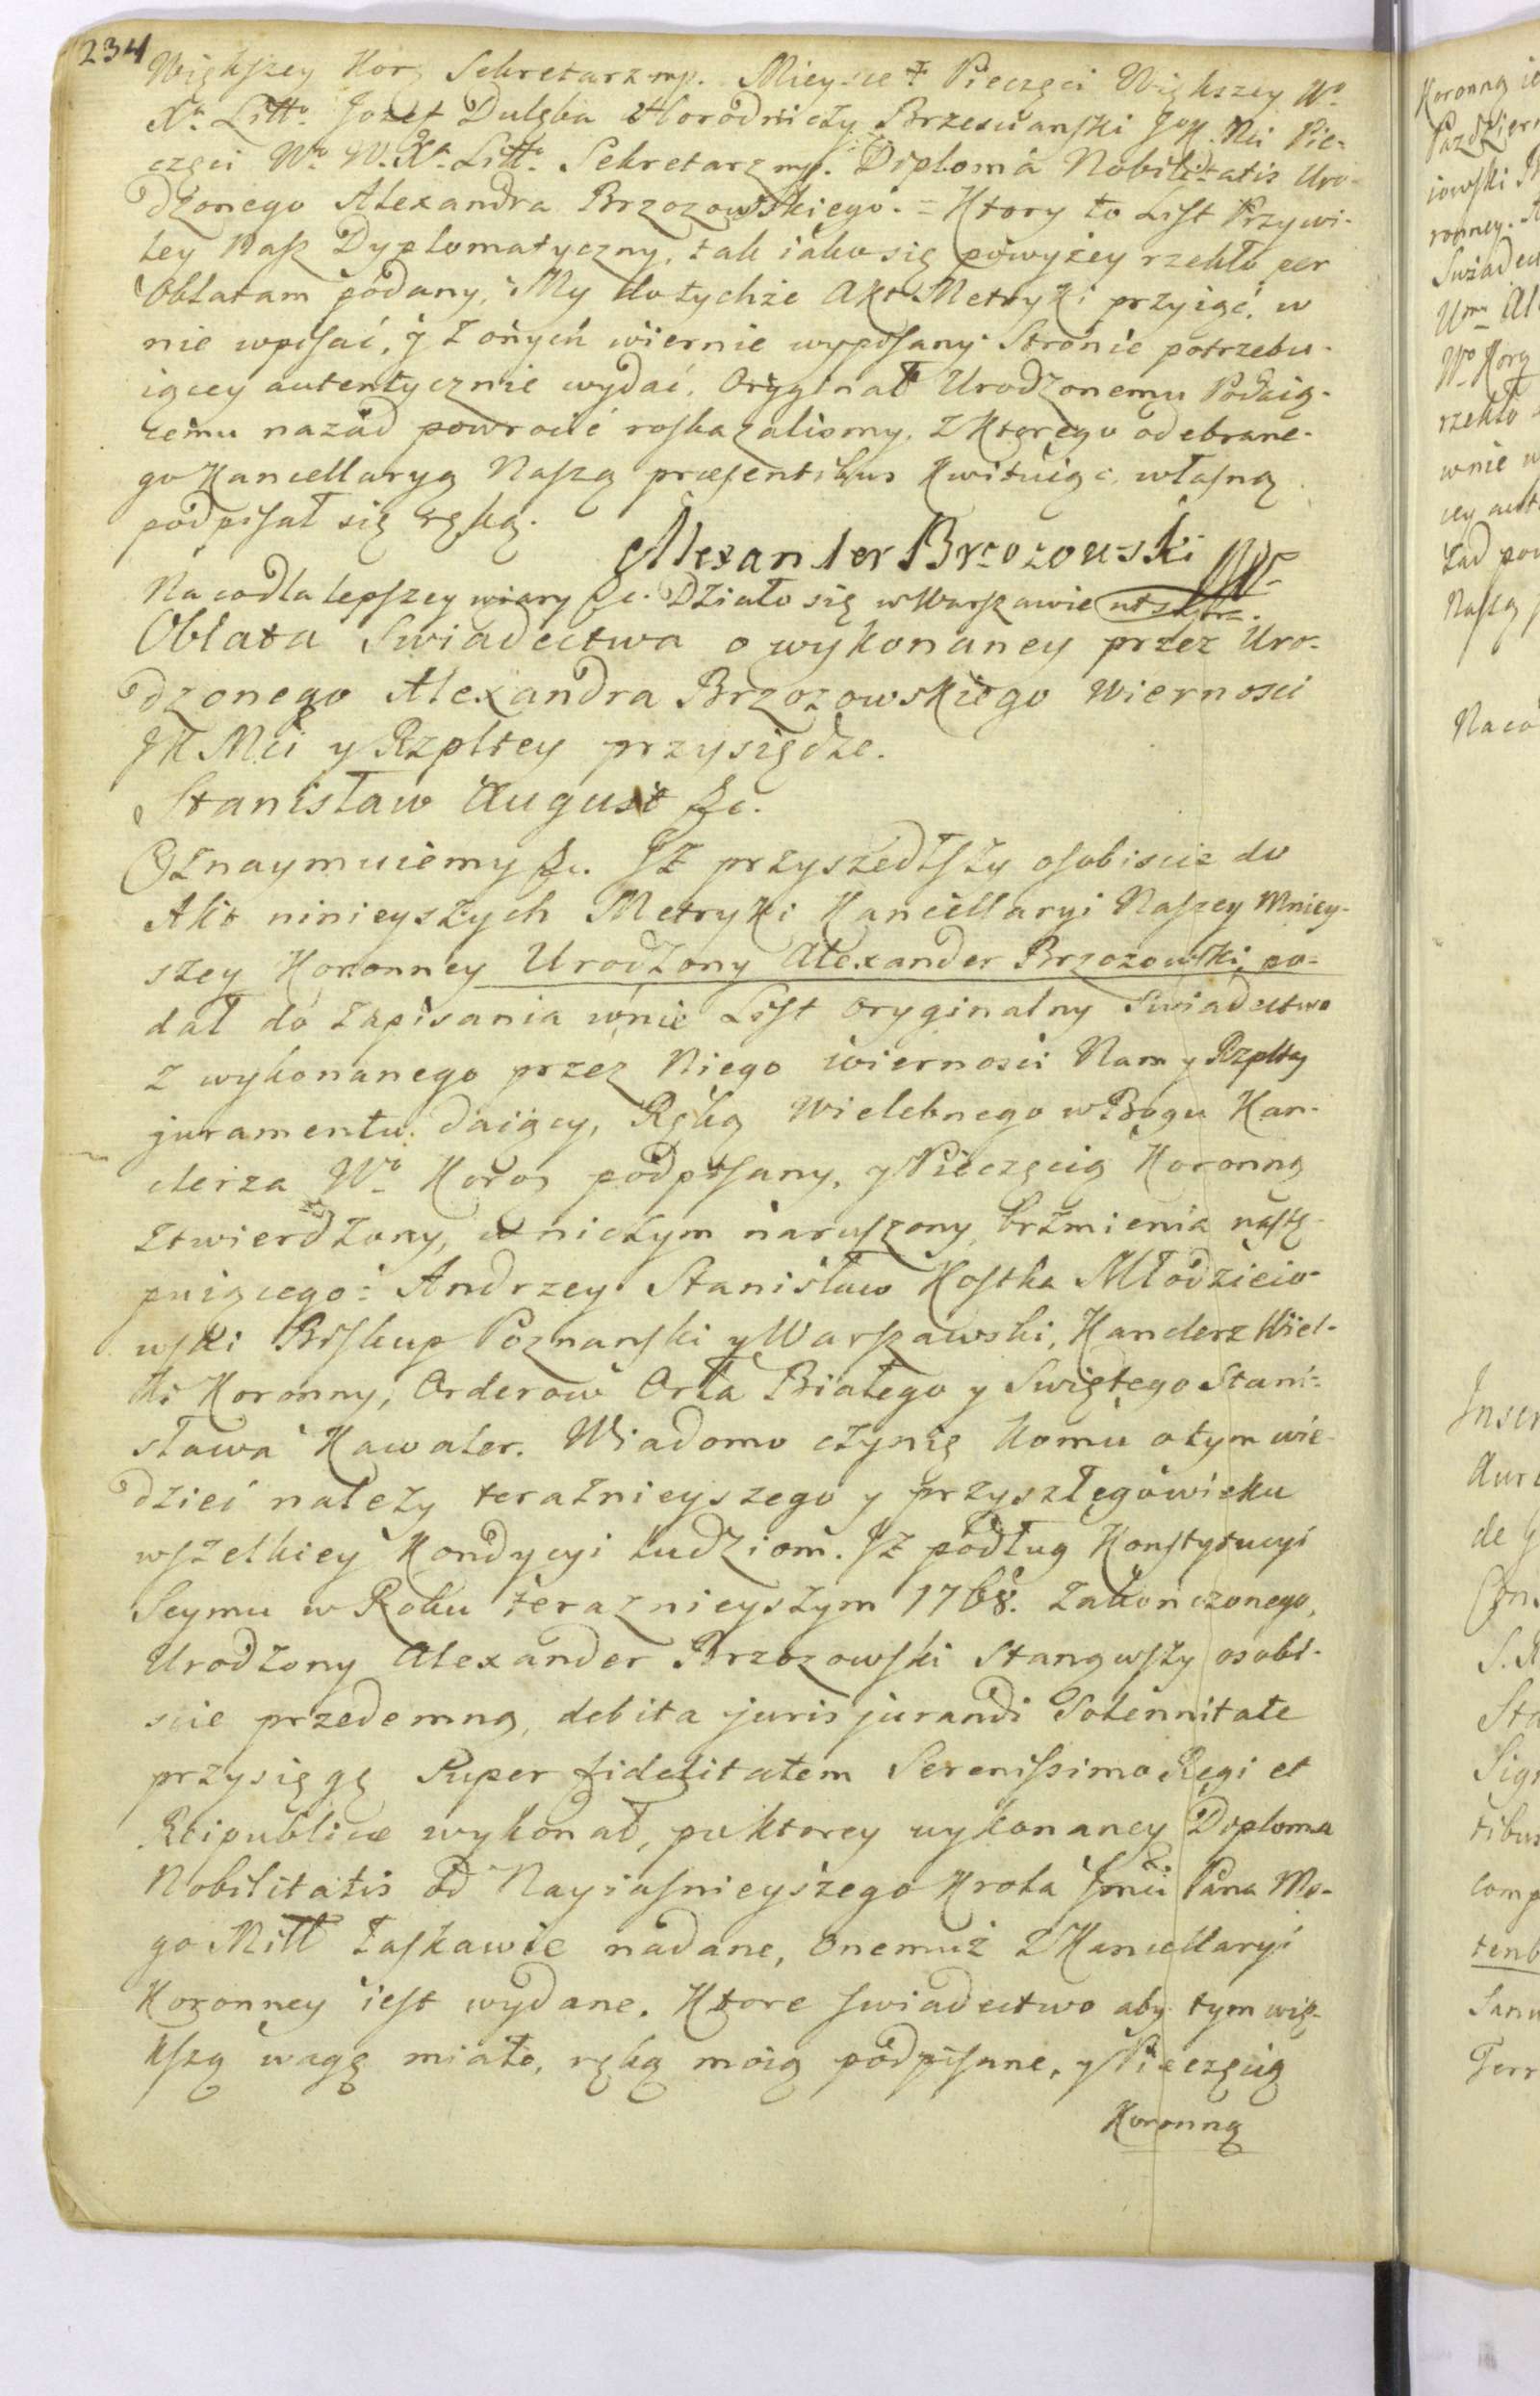 234
Większey Kor. Sekretarz mp. Mieysce ‡ Pieczęci Większey W.
Xa. Litto. Jozef Dulęba Horodniczy Brzesciański JoK. Mci Pie-
częci Wo. W. Xa. Litto. Sekretarz mp. Diploma Nobilitatis Uro-
dzonego Alexandra Brzozowskiego. = Ktory to List Przywi-
ley Nasz Dyplomatyczny, tak iako się powyżey rzekło per
Oblatam podany, My do tychże Akt Metryki przyiąć, w
nie wpisać, y z onych wiernie wypisany Stronie potrzebu-
iącey autentycznie wydać, Oryginał Urodzonemu Podaią-
cemu nazad powrocić roskazalismy, z ktorego odebrane-
go Kancellaryą Naszą præsentibus kwituiąc, własną
podpisał się ręką.
Alexander Brzozowski mp
Na co dla lepszey wiary &c. Działo się w Warszawie ut supra.
Oblata Swiadectwa o wykonaney przez Uro-
dzonego Alexandra Brzozowskiego Wiernosci
JK Mci y Rzpltey przysiędze.
Stanisław August &c.
Oznaymuiemy &c. Iż przyszedłszy osobiscie do
Akt ninieyszych Metryki Kancellaryi Naszey Mniey-
szey Koronney Urodzony Alexander Brzozowski, po-
dał do zapisania w nie List oryginalny Swiadectwo
z wykonanego przez Niego wiernosci Nam y Rzpltey
juramentu daiący, Ręką Wielebnego w Bogu Kan-
clerza Wo. Koro podpisany, y Pieczęcią Koronną
ztwierdzony, w niczym naruszony, brzmienia nastę-
puiącego: Andrzey Stanisław Kostka Młodzieio-
wski Biskup Poznański y Warszawski, Kanclerz Wiel-
ki Koronny, Orderow Orła Białego y Swiętego Stani-
sława Kawaler. Wiadomo czynię komu o tym wie-
dzieć należy teraznieyszego y przyszłego wieku
wszelkiey kondycyi ludziom. Iż podług Konstytucyi
Seymu w Roku teraznieyszym 1768. zakończonego,
Urodzony Alexander Brzozowski stanąwszy osobi-
scie przedemną, debita juris jurandi Solennitate
przysięgę Super fidelitatem Serenissimo Regi et
Reipublicæ wykonał, po ktorey wykonaney Diploma
Nobilitatis od Nayiasnieyszego Krola Jmci Pana Me-
go Mił łaskawie nadane, onemuż z Kancellaryi
Koronney iest wydane. Ktore swiadectwo aby tym wię-
kszą wagę miało, ręką moią podpisane, y Pieczęcią
Koronną